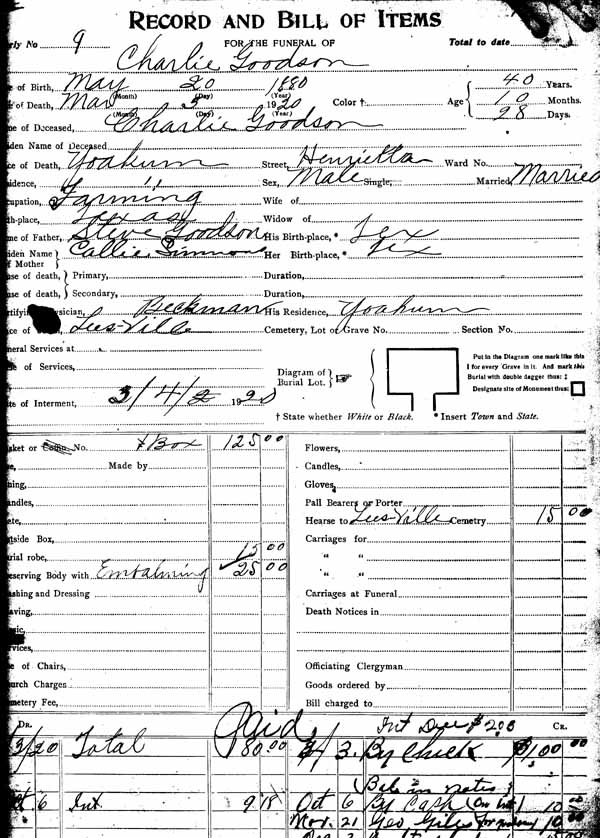 RECORD AND BILL OF ITEMS
rly No 9 FOR THE FUNERAL OF Total to date
Charlie Goodson
e of Birth, May 20 1880 40 Years.
(Month) (Day) (Year)
e of Death, Mar 3 1920 Color †. Age 10 Months.
(Month) (Day) (Year) 28 Days.
me of Deceased Charlie Goodson
iden Name of Deceased
ce of Death, Yoakum Street, Henrietta Ward No.
sidence, " Sex, Male Single, Married, Married
cupation, Farming Wife of
th-place, Texas Widow of
me of Father, Steve Goodson His Birth-place, * Tex
iden Name of Mother Callie Simmons Her Birth-place, * Tex
use of death, Primary, Duration,
use of death, Secondary, Duration,
rtifying Physician, Beckmann His Residence, Yoakum
ce of Leesville Cemetery, Lot or Grave No. Section No.
neral Services at
e of Services, Diagram of Burial Lot. Put in the Diagram one mark like this
I for every Grave in it. And mark this
Burial with double dagger thus: ‡
Designate site of Monument thus:
te of Interment, 3/4/ 1920
† State whether White or Black. * Insert Town and State.
sket or No. & Box 125 00 Flowers,
Made by Candles,
ning, Gloves,
andles, Pall Bearers or Porter
ate, Hearse to Leesville Cemetry 15 00
tside Box, Carriages for
rial robe, 15 00 " "
eserving Body with Embalming 25 00 " "
ashing and Dressing Carriages at Funeral
aving, Death Notices in
sic,
rvices,
e of Chairs, Officiating Clergyman
urch Charges Goods ordered by
metery Fee, Bill charged to
DR. Paid Int Due $2.00 CR.
3/20 Total 180.00 3. By Check $100 00
Bal in notes
Oct. 6 Int 9 18 Oct 6 By Cash (on Int) 10 00
Nov. 21 Geo Giles 10 00